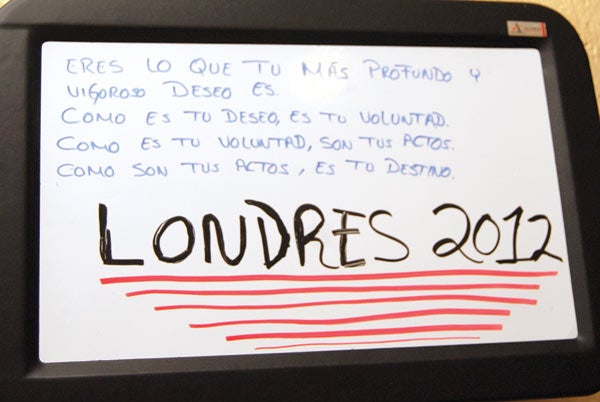 ERES LO QUE TU MÁS PROFUNDO Y
VIGOROSO DESEO ES.
COMO ES TU DESEO, ES TU VOLUNTAD.
COMO ES TU VOLUNTAD, SON TUS ACTOS.
COMO SON TUS ACTOS, ES TU DESTINO.
LONDRES 2012